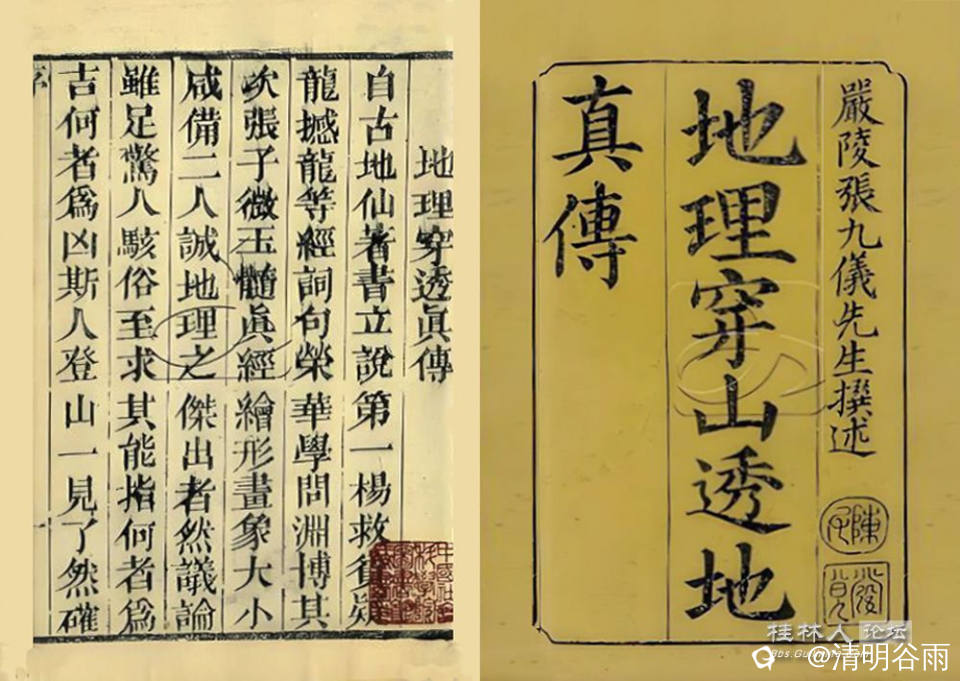 嚴陵張九儀先生撰述
地理穿山透地
真傳
地理穿透眞傳
自古地仙著書立說第一楊救貧疑
龍撼龍等經詞句榮華學問淵博其
次張子微玉髓眞經繪形畫象大小
咸備二人誠地理之傑出者然議論
雖足驚人駭俗至求其能指何者爲
吉何者爲凶斯人登山一見了然確
桂林人 论坛
@清明谷雨